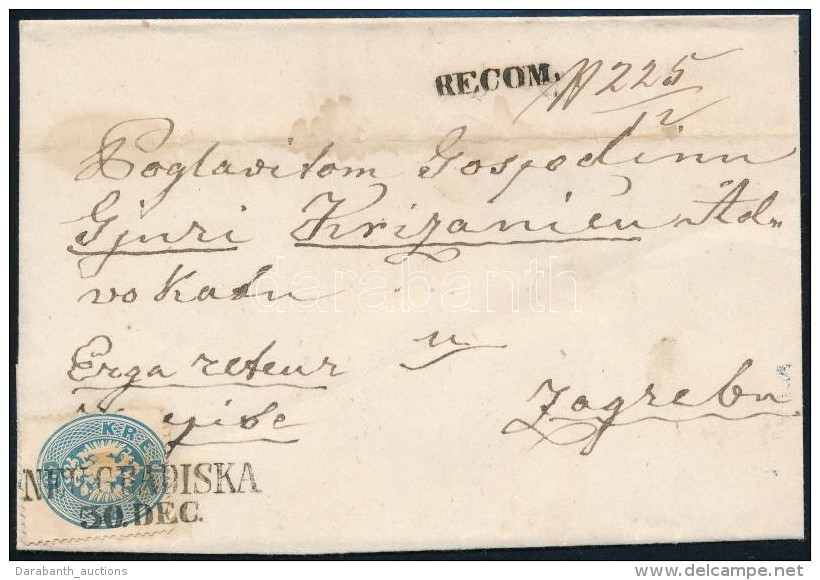 RECOM.
N 225
12
Poglavitom Gospodinu
Gjuri Krizaniću Ad=
vokatu
u
Erga reteur
Zagrebu
KRE
NEU GRADISKA
30. DEC.
darabanth
Darabanth_auctions
delcampe.net